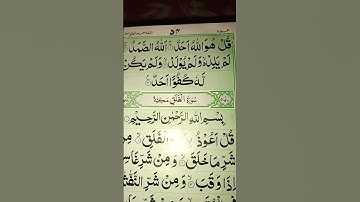 ۵۴
قُلْ هُوَ اللّٰهُ اَحَدٌ ۚ اَللّٰهُ الصَّمَدُ ۚ
لَمْ يَلِدْ ۙ وَلَمْ يُوْلَدْ ۙ وَلَمْ يَكُنْ
لَّهٗ كُفُوًا اَحَدٌ
سُوْرَةُ الْفَلَقِ مَكِّيَّةٌ
بِسْمِ اللّٰهِ الرَّحْمٰنِ الرَّحِيْمِ
قُلْ اَعُوْذُ بِرَبِّ الْفَلَقِ ۙ مِنْ
شَرِّ مَا خَلَقَ ۙ وَمِنْ شَرِّ غَاسِقٍ
اِذَا وَقَبَ ۙ وَمِنْ شَرِّ النَّفّٰثٰتِ